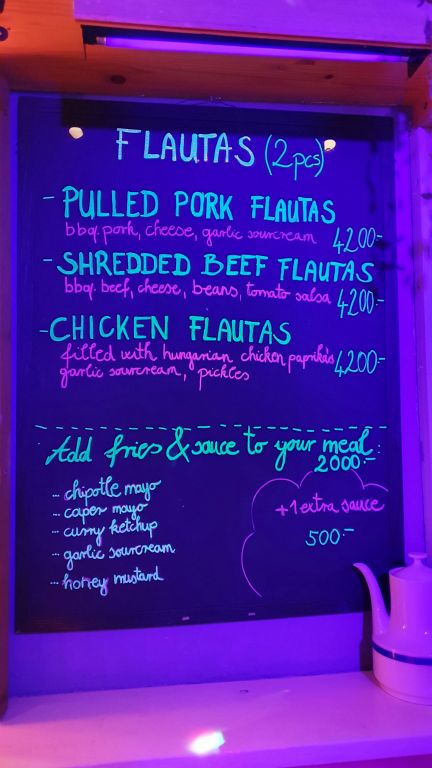 FLAUTAS (2pcs)
- PULLED PORK FLAUTAS
bbq. pork, cheese, garlic sourcream 4200.-
- SHREDDED BEEF FLAUTAS
bbq. beef, cheese, beans, tomato salsa 4200.-
- CHICKEN FLAUTAS
filled with hungarian chicken paprikás 4200.-
garlic sourcream, pickles
Add fries & sauce to your meal:
2000.-
... chipotle mayo
... caper mayo
... curry ketchup
... garlic sourcream
... honey mustard
+1 extra sauce
500.-